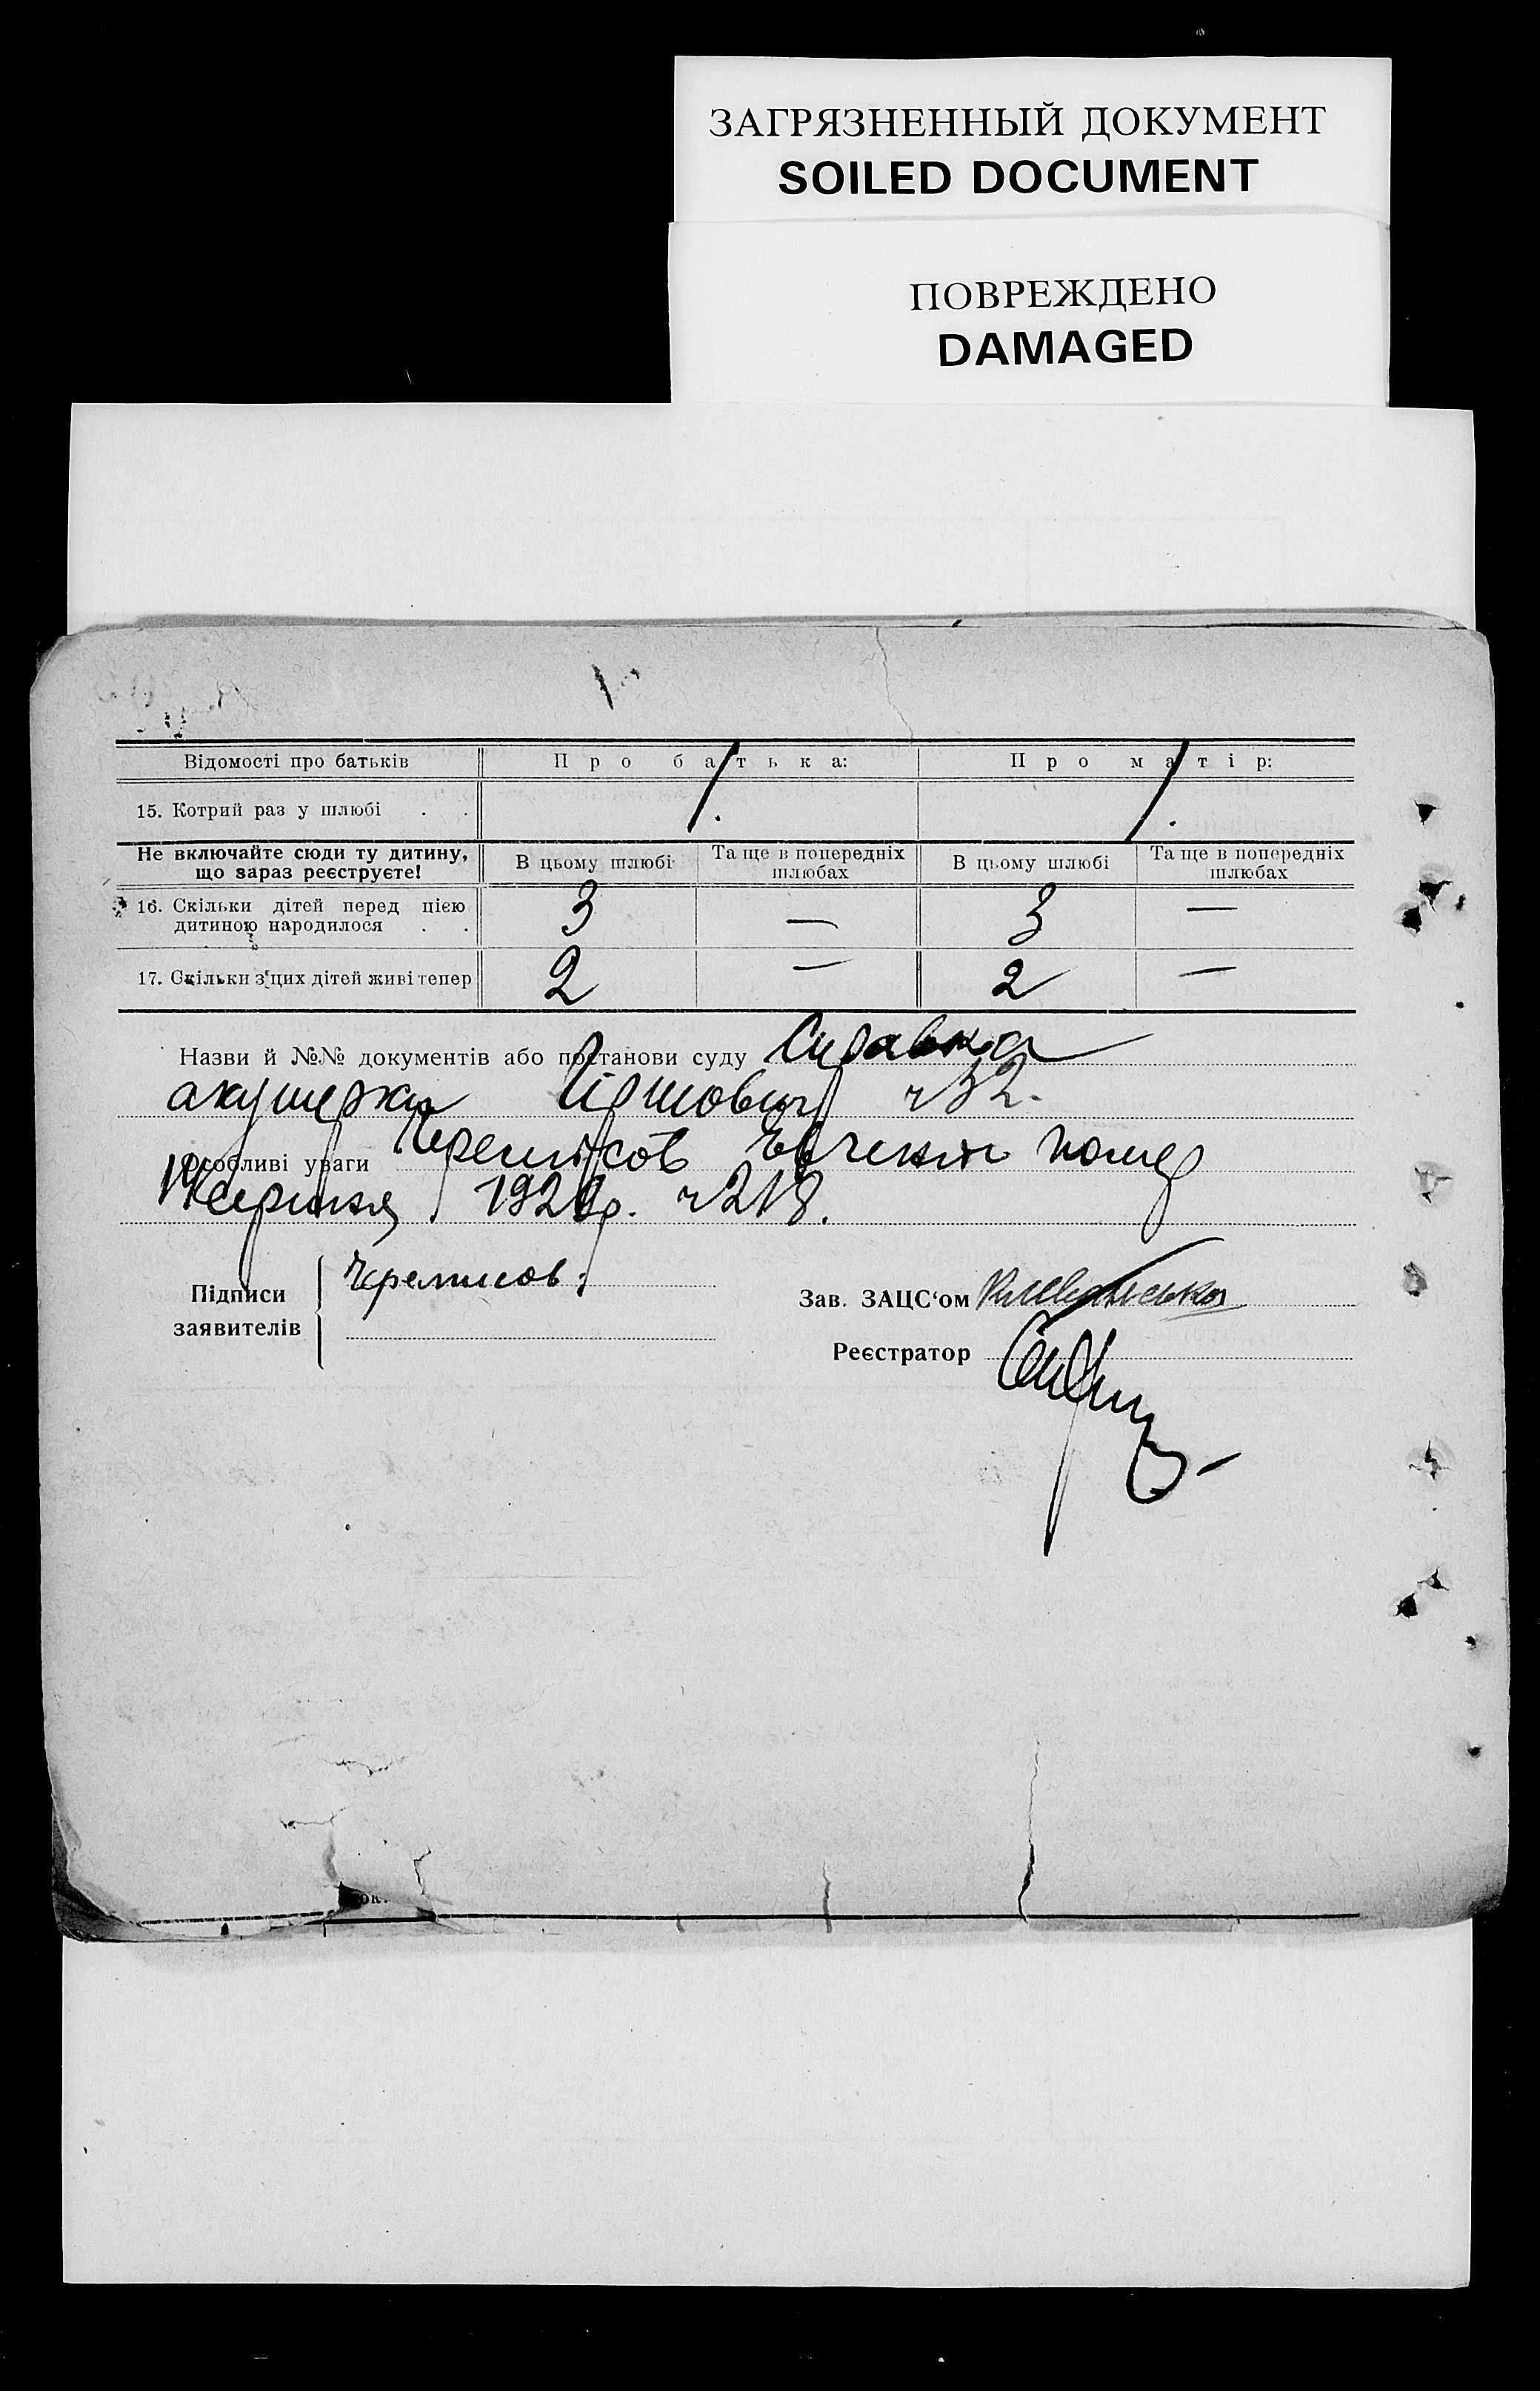 ЗАГРЯЗНЕННЫЙ ДОКУМЕНТ
SOILED DOCUMENT
ПОВРЕЖДЕНО
DAMAGED
Відомості про батьків Про батька: Про матір:
15. Котрий раз у шлюбі . . 1. 1.
Не включайте сюди ту дитину, що зараз реєструєте! В цьому шлюбі Та ще в попередніх шлюбах В цьому шлюбі Та ще в попередніх шлюбах
16. Скільки дітей перед цією дитиною народилося . . 3 — 3 —
17. Скільки з цих дітей живі тепер 2 — 2 —
Назви й №№ документів або постанови суду Справка
акушерки ч 32.
Особливі уваги Черемисов Євгеній помер
14 серпня 1929р. ч 218.
Підписи заявителів Черемисов
Зав. ЗАЦС‘ом
Реєстратор